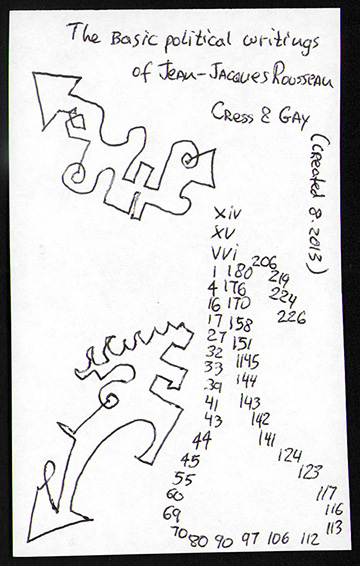 The Basic political writings
of Jean-Jacques Rousseau
Cress & Gay
(created 8.2013)
xiv
xv
vvi 206
1 180 219
4 176 224
16 170 226
17 158
27 151
32 1145
33 144
39 143
41 142
43 141
44 124
45 123
55 117
60 116
69 113
70 80 90 97 106 112